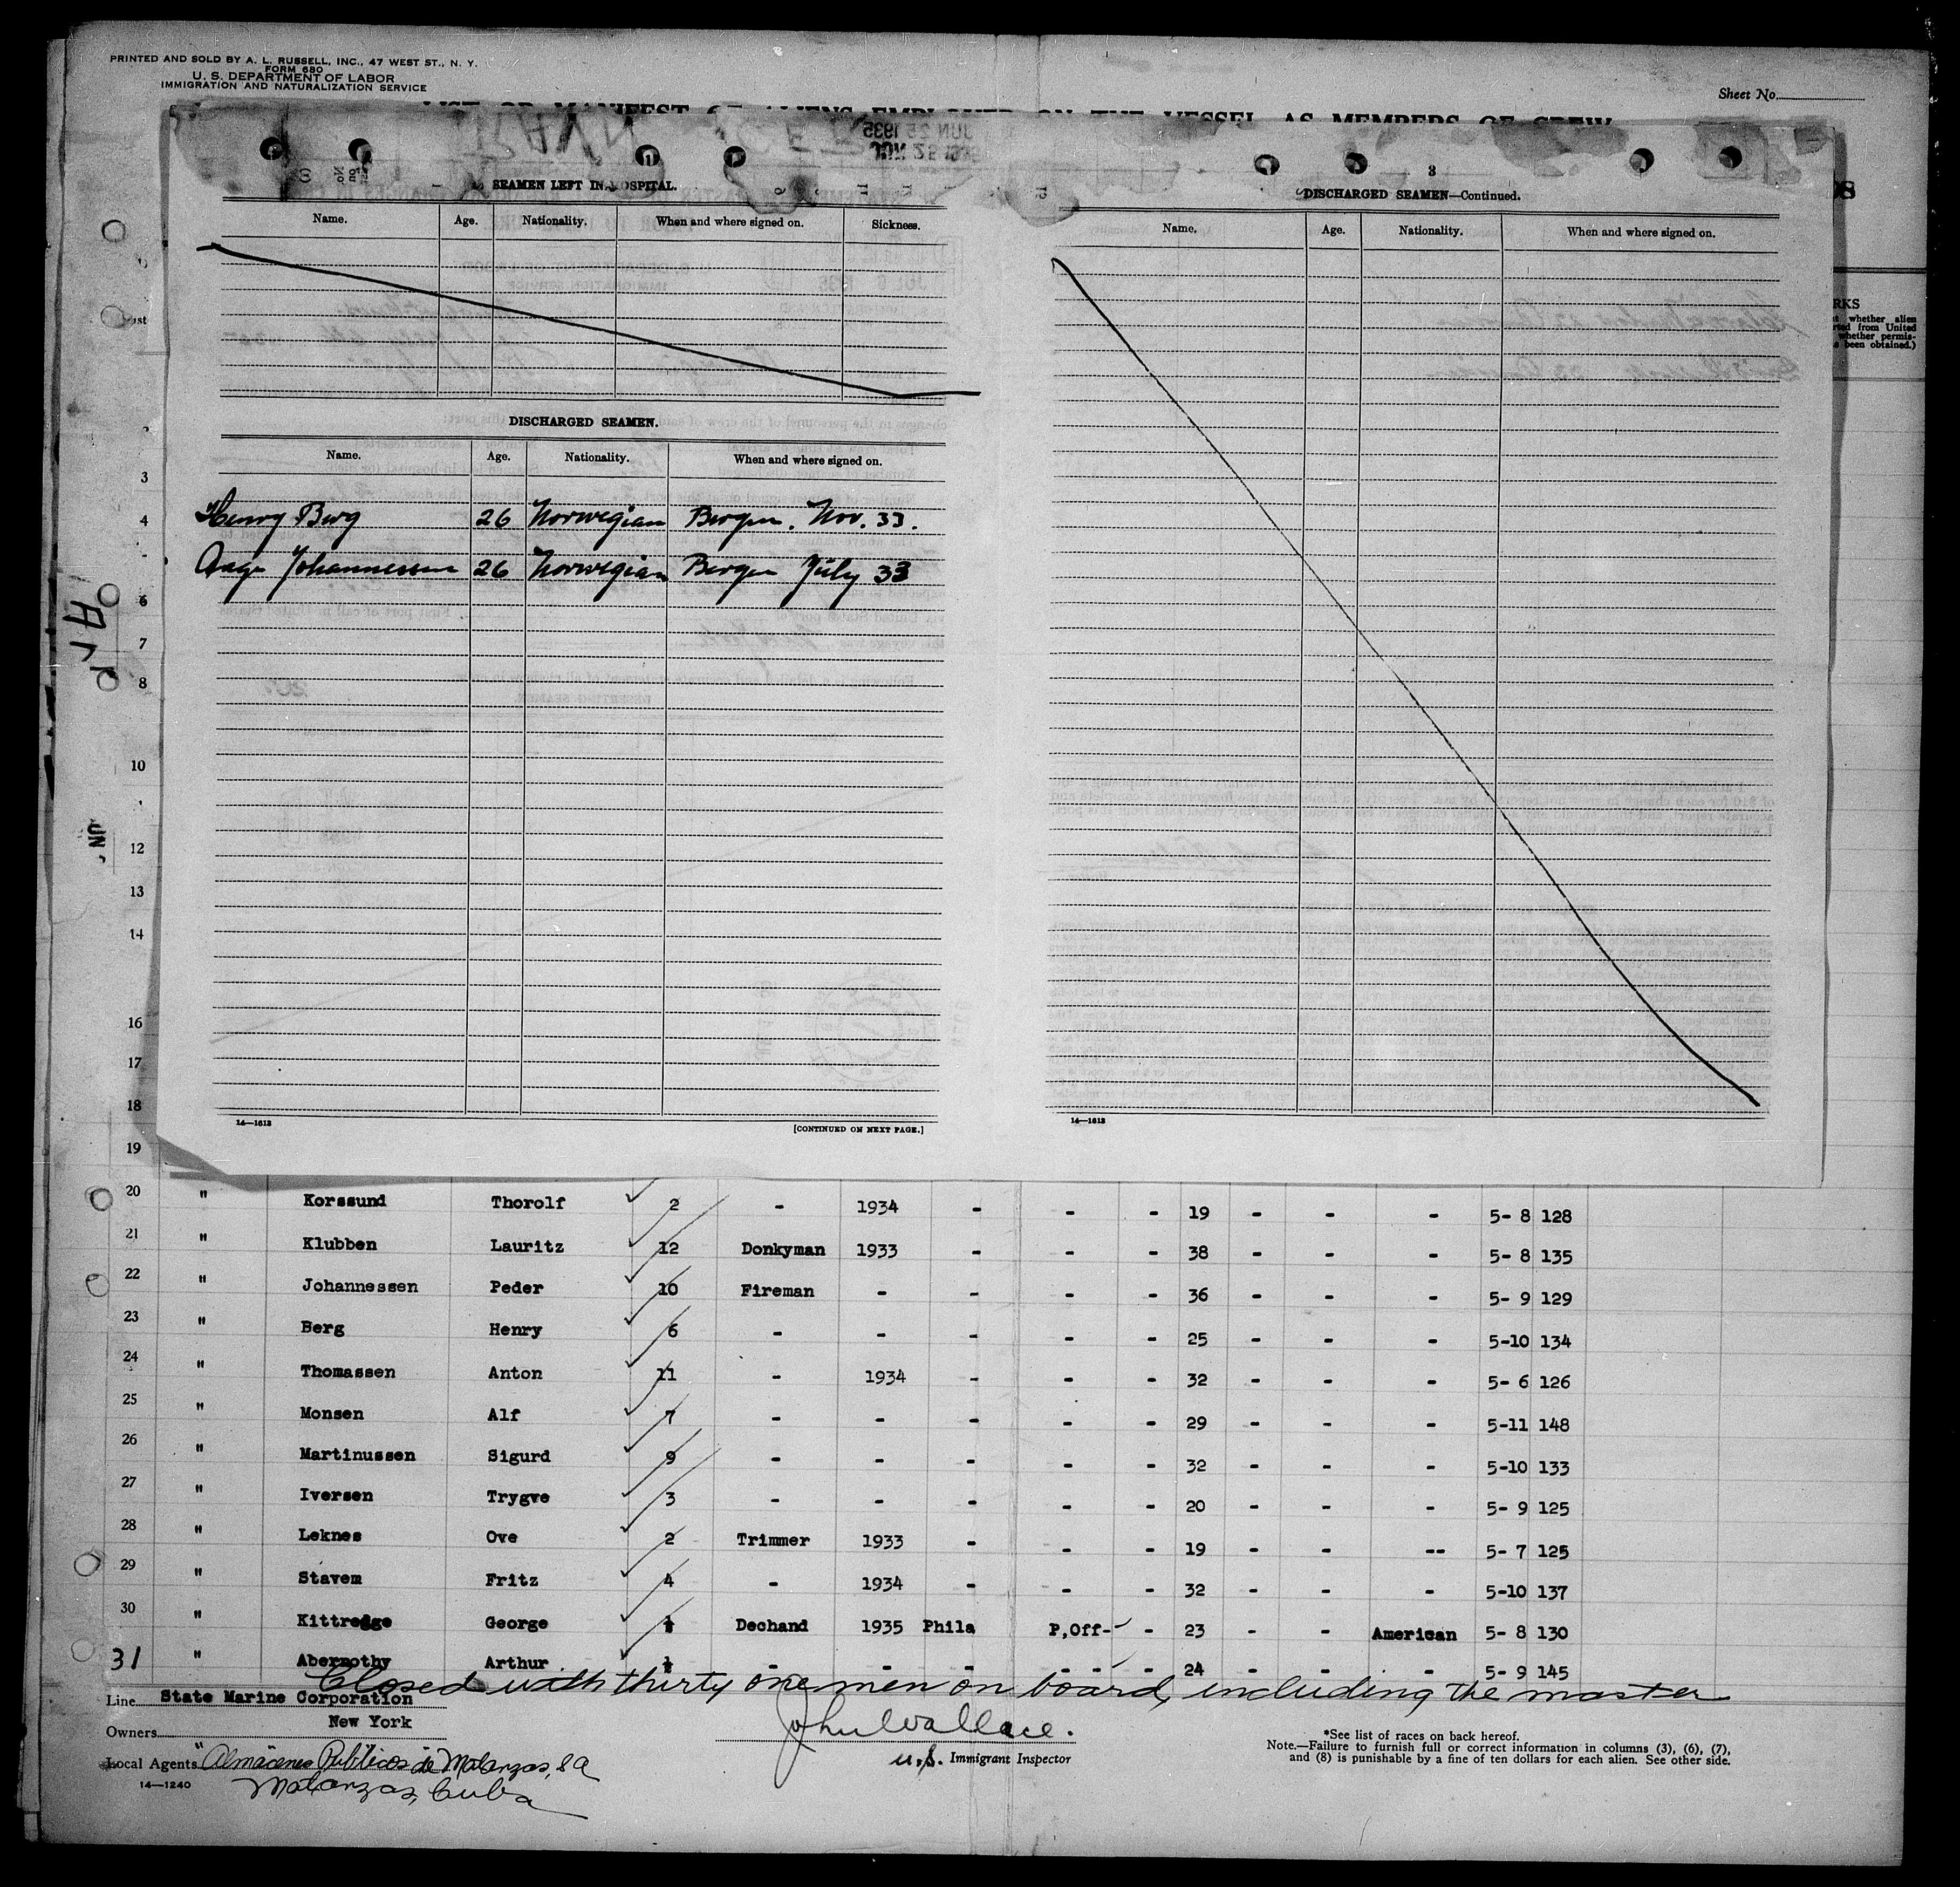 PRINTED AND SOLD BY A. L. RUSSELL, INC., 47 WEST ST., N. Y.
FORM 680
U. S. DEPARTMENT OF LABOR
IMMIGRATION AND NATURALIZATION SERVICE
Sheet No.
LIST OR MANIFEST OF ALIENS EMPLOYED ON THE VESSEL AS MEMBERS OF CREW
JUN 25 1935
JUN 25 1935
SEAMEN LEFT IN HOSPITAL.
Name. Age. Nationality. When and where signed on. Sickness.
DISCHARGED SEAMEN.
Name. Age. Nationality. When and where signed on.
Henry Berg 26 Norwegian Bergen. Nov. 33.
Aage Johannessen 26 Norwegian Bergen July 33
14—1613 [CONTINUED ON NEXT PAGE.]
3
DISCHARGED SEAMEN—Continued.
Name. Age. Nationality. When and where signed on.
14—1613
RKS
whether alien
from United
whether permis-
been obtained.)
3
4
6
7
8
10
12
13
14
16
17
18
19
20 " Korssund Thorolf 2 - 1934 - - - 19 - - - 5- 8 128
21 " Klubben Lauritz 12 Donkyman 1933 - - - 38 - - - 5- 8 135
22 " Johannessen Peder 10 Fireman - - - - 36 - - - 5- 9 129
23 " Berg Henry 6 - - - - - 25 - - - 5-10 134
24 " Thomassen Anton 11 - 1934 - - - 32 - - - 5- 6 126
25 " Monsen Alf 7 - - - - - 29 - - - 5-11 148
26 " Martinussen Sigurd 9 - - - - - 32 - - - 5-10 133
27 " Iversen Trygve 3 - - - - - 20 - - - 5- 9 125
28 " Leknes Ove 2 Trimmer 1933 - - - 19 - - -- 5- 7 125
29 " Stavem Fritz 4 - 1934 - - - 32 - - - 5-10 137
30 " Kittredge George Dechand 1935 Phila P,Off- - 23 - - American 5- 8 130
31 " Abernothy Arthur - - - - - - 24 - - - 5- 9 145
Closed with thirty one men on board, including the master
Line State Marine Corporation
New York
Owners
John Wallace.
U.S. Immigrant Inspector
Local Agents "Almacenes Publicos de Matanzas, S A
Matanzas, Cuba
14—1240
*See list of races on back hereof.
Note.—Failure to furnish full or correct information in columns (3), (6), (7),
and (8) is punishable by a fine of ten dollars for each alien. See other side.